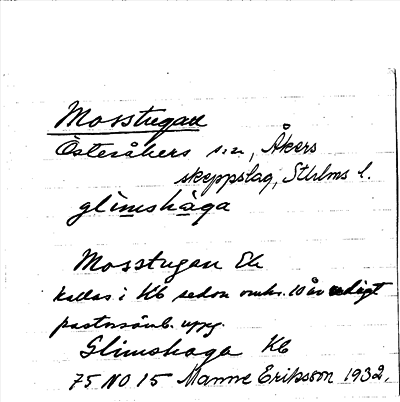 Mosstugan
Österåkers sn, Åkers
skeppslag, Sthlms l.
glimshàga
Mosstugan Eb
kallas i Kb sedan omkr. 10 år enligt
pastorsämb. uppg.
Glimshaga Kb
75 NO 15 Manne Eriksson 1932.